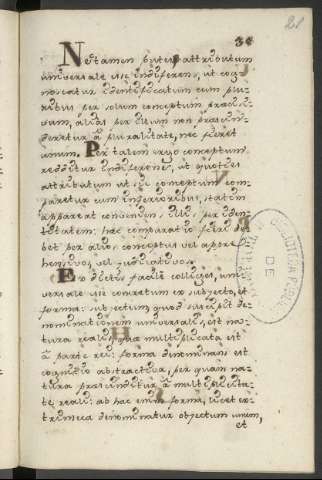 34
21
Nec tamen potest attributum
universale esse indifferens, ut cog
noscatur identificatum cum plu
ribus per solum conceptum præci-
sum, alias per illum non præscin-
deretur à pluralitate, nec fieret
unum. Per talem ergo conceptum
redditur indifferens, ut quoties
attributum ut sic conceptum com
paretur cum inferioribus, statim
appareat convenire illis per iden-
titatem: hæc comparatio fieri de
bet per alios conceptus vel appre
hensivos, vel judicativos.
Ex dictis facile colliges, uni-
versale esse concretum ex subjecto, et
forma: subjectum, quod suscipit de-
nominationem universalis, est na-
tura realis, quæ multiplicata est
à parte rei: forma denominans est
cognitio abstractiva, per quam na-
tura præscinditur à multiplicita-
te reali: ab hac enim forma, licet ex-
trinseca denominatur objectum unum,
et
BIBLIOTECA
DE